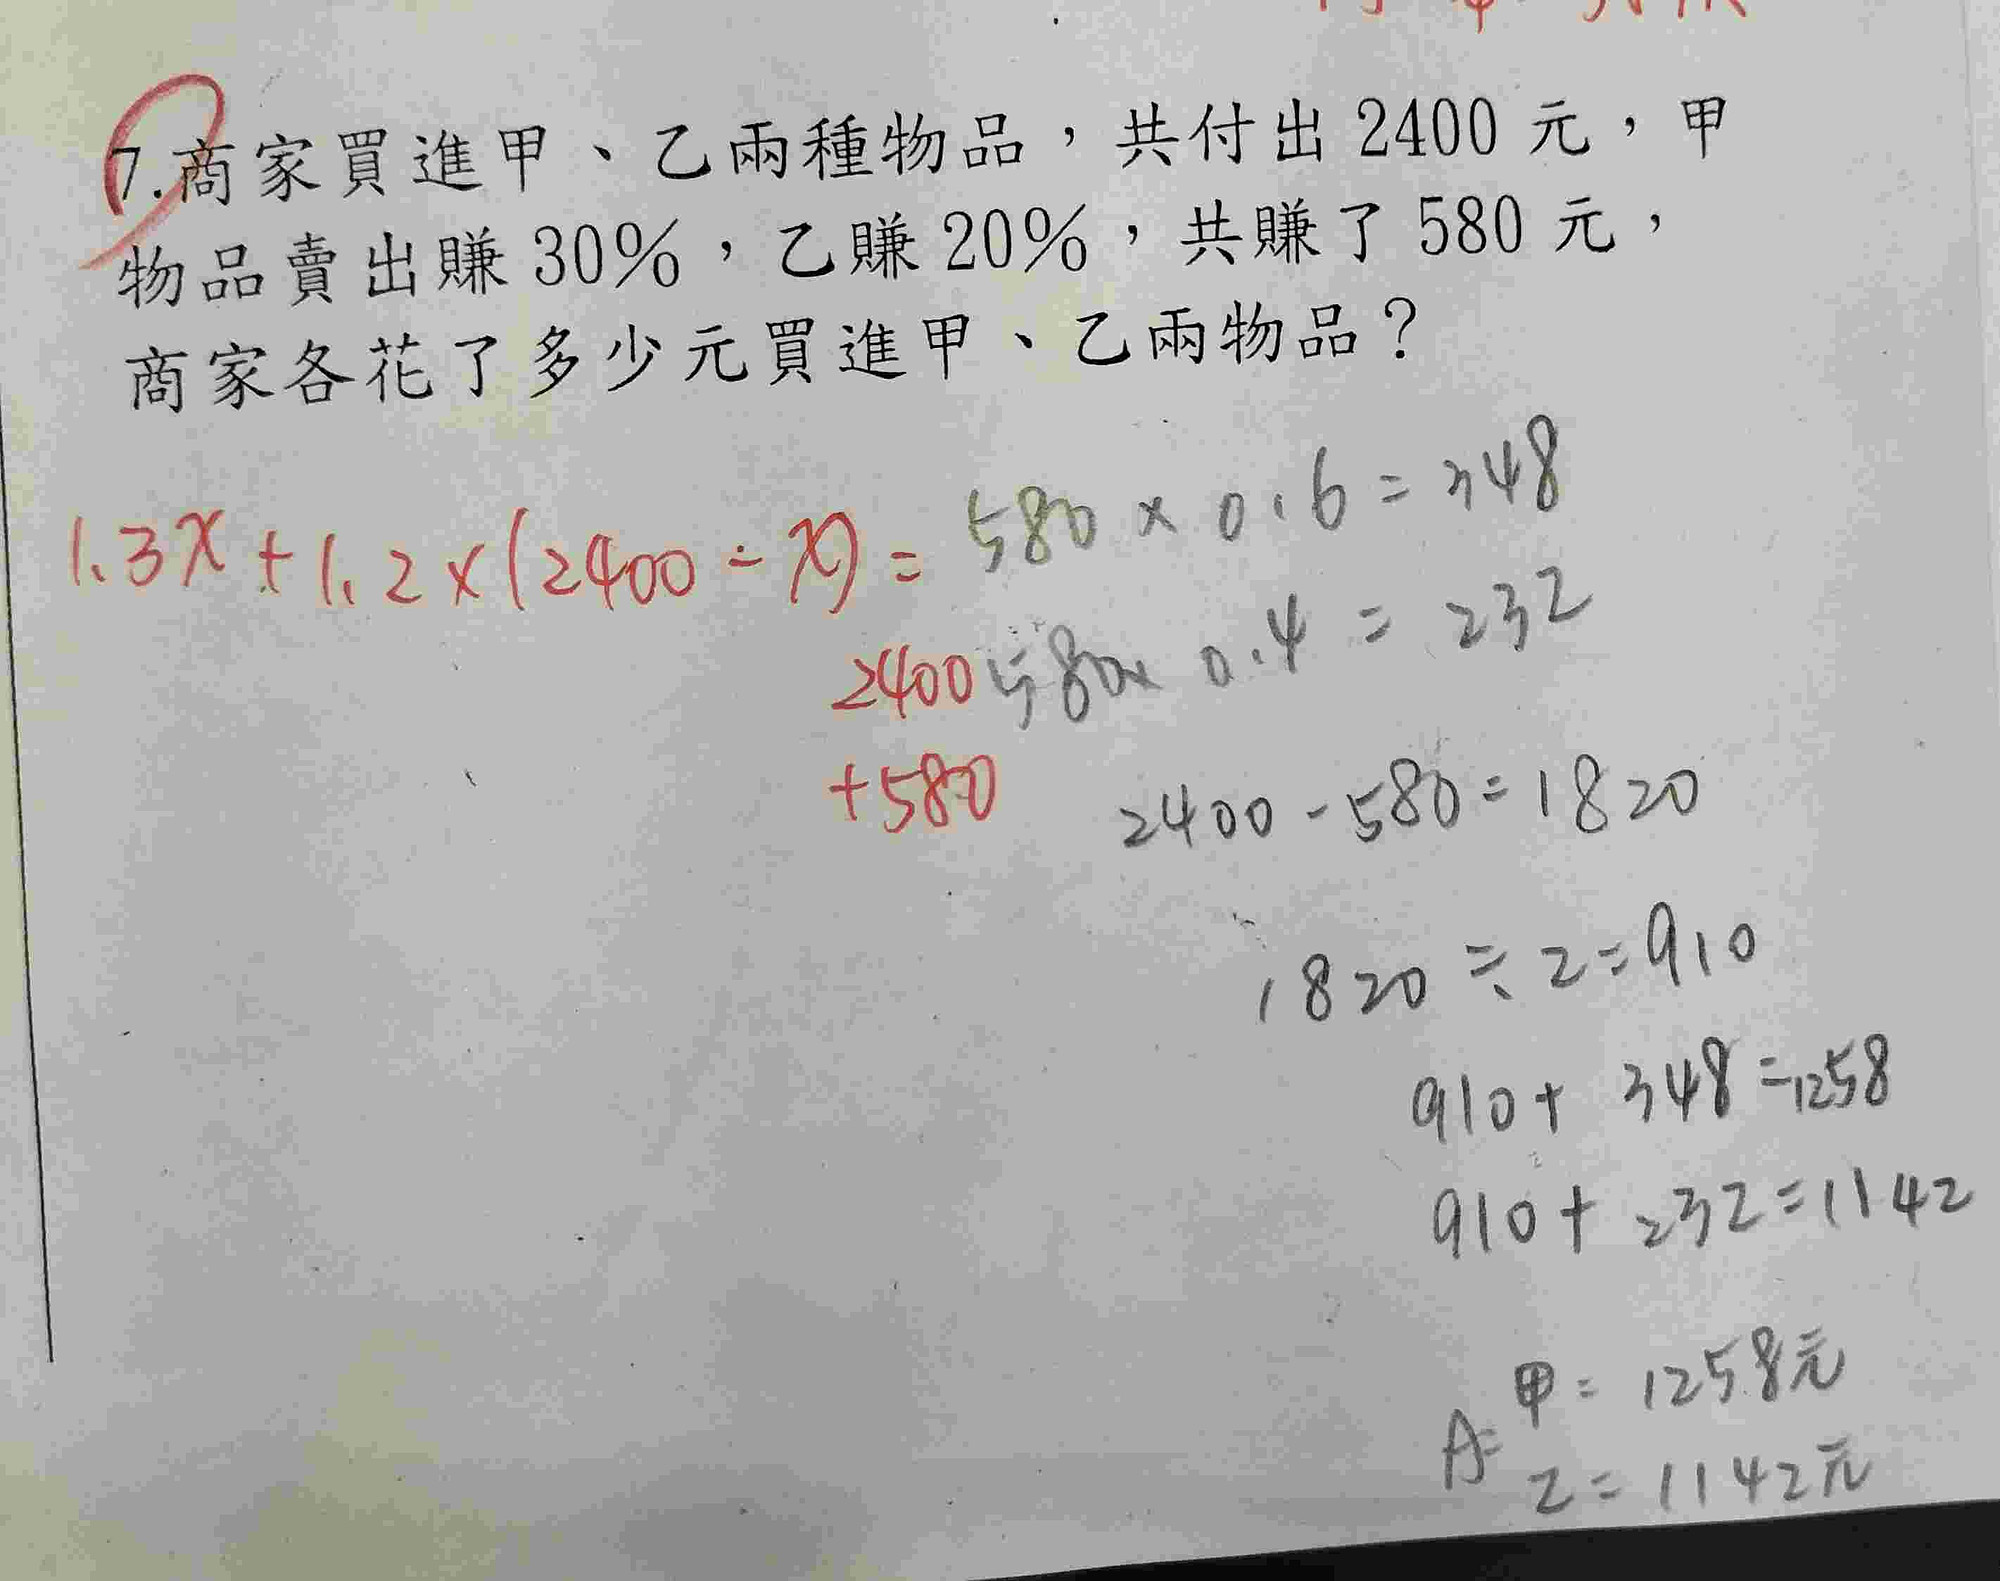 7.商家買進甲、乙兩種物品，共付出 2400 元，甲
物品賣出賺 30%，乙賺 20%，共賺了 580 元，
商家各花了多少元買進甲、乙兩物品？
580 × 0.6 = 348
1.3x + 1.2 × (2400 - x) =
2400
580 × 0.4 = 232
+580
2400 - 580 = 1820
1820 ÷ 2 = 910
910 + 348 = 1258
910 + 232 = 1142
甲 = 1258元
A:
乙 = 1142元